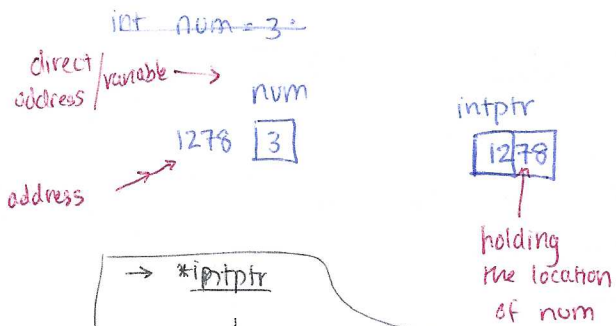 int num = 3;
direct
address / variable →
num
1278 3
address
intptr
1278
holding
the location
of num
→ *intptr